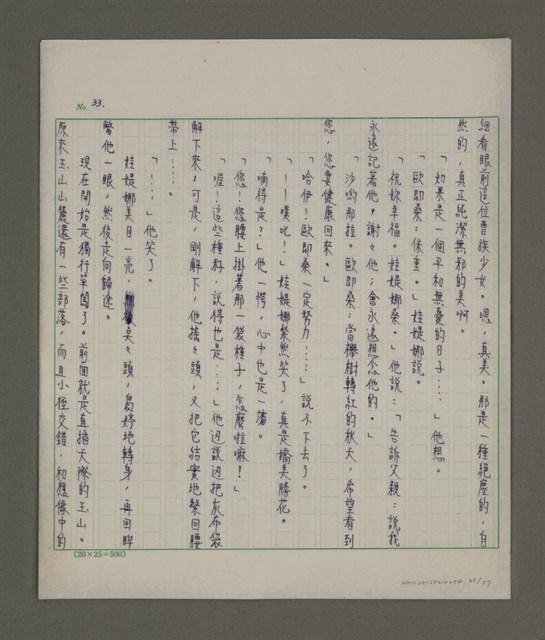 No. 33.
細看眼前這位曹族少女。嗯，真美。那是一種絕塵的，自
然的，真正純潔無邪的美啊。
「如果是一個平和無憂的日子……」他想。
「歐即桑：保重。」娃媞娜說。
「祝妳幸福。娃媞娜桑。」他說：「告訴父親：說我
永遠記著他，謝々他；會永遠想念他的。」
「沙喲那拉。歐即桑：當櫸樹轉紅的秋天，希望看到
您，您要健康回來。」
「哈伊！歐即桑一定努力……」說不下去了。
「——噗叱！」娃媞娜粲然笑了，真是嬌美勝花。
「喃得是？」他一愣，心中也是一蕩。
「您！您腰上掛著那一袋種子，怎麼啦嘛？」
「喔！這些種籽，說得也是……」他邊說邊把灰布袋
解下來，可是，剛解下，他搖々頭，又把它結實地繫回腰
帶上……。
「！……」他笑了。
娃媞娜美目一亮，點々頭，裊婷地轉身，再回眸
瞥他一眼，然後走向歸途。
現在開始是獨行單闖了。前面就是直插天際的玉山。
原來玉山山麓還有一些部落，而且小徑交錯，和想像中的
(20×25=500)